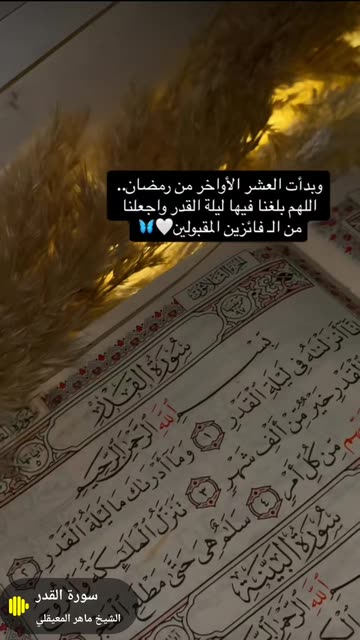 وبدأت العشر الأواخر من رمضان..
اللهم بلغنا فيها ليلة القدر واجعلنا
من الـ فائزين المقبولين🤍🦋
سُورَةُ الْقَدْرِ
بِسْــــمِ اللَّهِ الرَّحْمَٰنِ الرَّحِيمِ
إِنَّا أَنْزَلْنَاهُ فِي لَيْلَةِ الْقَدْرِ ١ وَمَا أَدْرَاكَ مَا لَيْلَةُ الْقَدْرِ
الْقَدْرِ خَيْرٌ مِنْ أَلْفِ شَهْرٍ ٣ تَنَزَّلُ الْمَلَائِكَةُ وَالرُّوحُ
مِنْ كُلِّ أَمْرٍ ٤ سَلَامٌ هِيَ حَتَّى مَطْلَعِ
سُورَةُ الْبَيِّنَةِ
اللَّهِ الرَّحْمَٰنِ
سورة القدر
الشيخ ماهر المعيقلي